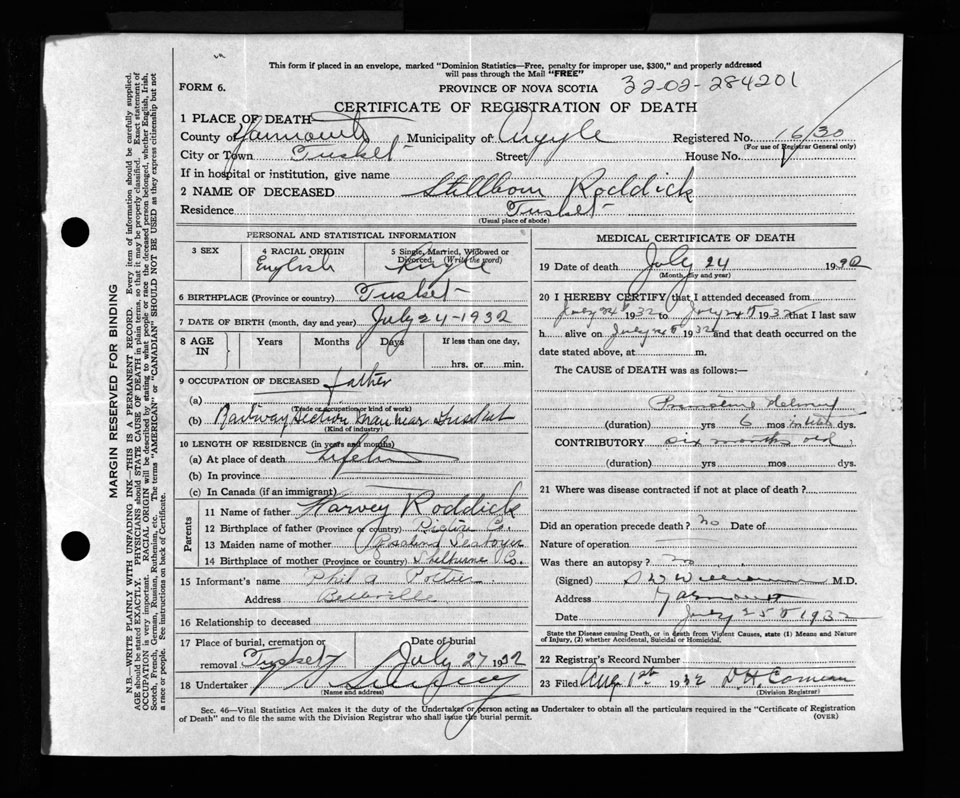 This form if placed in an envelope, marked "Dominion Statistics—Free, penalty for improper use, $300," and properly addressed
will pass through the Mail "FREE"
FORM 6.
PROVINCE OF NOVA SCOTIA 32-02-284201
CERTIFICATE OF REGISTRATION OF DEATH
1 PLACE OF DEATH
County of Yarmouth Municipality of Argyle Registered No. 1630
(For use of Registrar General only)
City or Town Tusket Street House No.
If in hospital or institution, give name
2 NAME OF DECEASED Stillborn Roddick
Residence Tusket
(Usual place of abode)
PERSONAL AND STATISTICAL INFORMATION
3 SEX 4 RACIAL ORIGIN English 5 Single, Married, Widowed or Divorced. (Write the word) Single
6 BIRTHPLACE (Province or country) Tusket
7 DATE OF BIRTH (month, day and year) July 24-1932
8 AGE IN Years Months Days If less than one day, hrs. or min.
9 OCCUPATION OF DECEASED father
(a)
(Trade or occupation or kind of work)
(b) Railway Section man near Tusket
(Kind of industry)
10 LENGTH OF RESIDENCE (in years and months)
(a) At place of death
(b) In province
(c) In Canada (if an immigrant)
Parents
11 Name of father Harvey Roddick
12 Birthplace of father (Province or country) Pictou Co.
13 Maiden name of mother Rosalind
14 Birthplace of mother (Province or country) Shelburne Co.
15 Informant's name Phil A Pottier
Address Belleville
16 Relationship to deceased
17 Place of burial, cremation or removal Tusket Date of burial July 27 1932
18 Undertaker
(Name and address)
MEDICAL CERTIFICATE OF DEATH
19 Date of death July 24 1932
(Month, day and year)
20 I HEREBY CERTIFY that I attended deceased from
July 24th 1932 to July 24th 1932 that I last saw
h alive on July 24th 1932 and that death occurred on
date stated above, at m.
The CAUSE of DEATH was as follows:—
Premature delivery
(duration) yrs 6 mos dys.
CONTRIBUTORY six months old
(duration) yrs mos dys.
21 Where was disease contracted if not at place of death?
Did an operation precede death? no Date of
Nature of operation
Was there an autopsy? no
(Signed) S W Williamson M.D.
Address Yarmouth
Date July 25th 1932
State the Disease causing Death, or in death from Violent Causes, state (1) Means and Nature
of Injury, (2) whether Accidental, Suicidal or Homicidal.
22 Registrar's Record Number
23 Filed Aug 1st 1932 D.H. Comeau
(Division Registrar)
Sec. 46—Vital Statistics Act makes it the duty of the Undertaker or person acting as Undertaker to obtain all the particulars required in the "Certificate of Registration
of Death" and to file the same with the Division Registrar who shall issue the burial permit. (OVER)
MARGIN RESERVED FOR BINDING
N.B.—WRITE PLAINLY WITH UNFADING INK—THIS IS A PERMANENT RECORD. Every item of information should be carefully supplied.
AGE should be stated EXACTLY. PHYSICIANS should STATE CAUSE OF DEATH in plain terms, so that it may be properly classified. Exact statement of
OCCUPATION is very important. RACIAL ORIGIN will be described by stating to what people or race the deceased person belonged, whether English, Irish,
Scotch, French, German, Russian, Ruthenian, etc. The terms "AMERICAN" or "CANADIAN" SHOULD NOT BE USED as they express citizenship but not
a race or people. See instructions on back of Certificate.